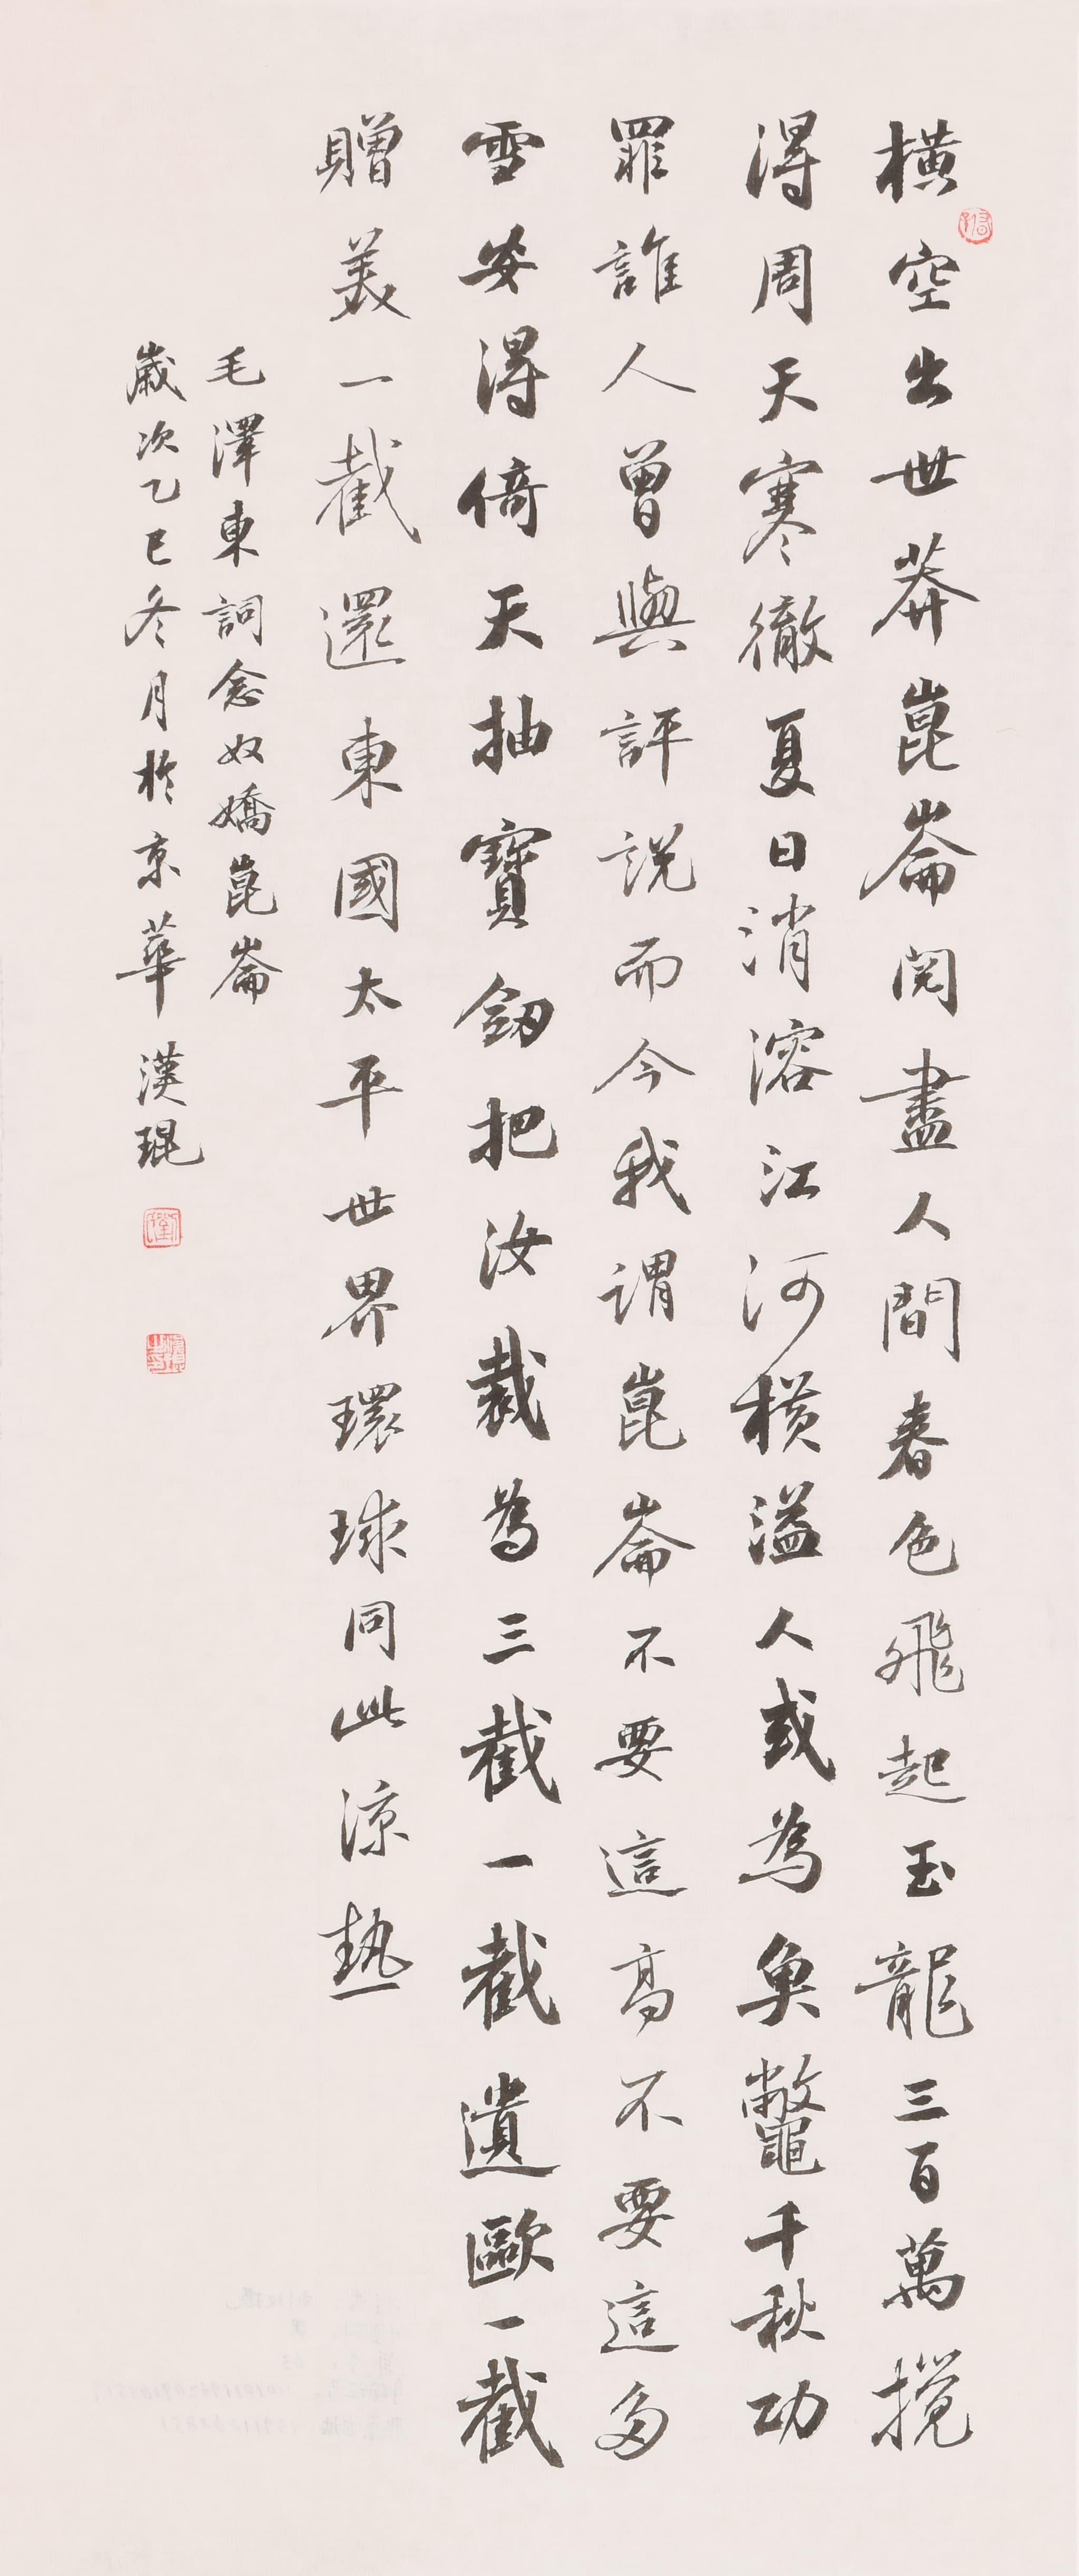 橫空出世莽崑崙閱盡人間春色飛起玉龍三百萬攪
得周天寒徹夏日消溶江河橫溢人或為魚鼈千秋功
罪誰人曾與評說而今我謂崑崙不要這高不要這多
雪安得倚天抽寶劒把汝裁為三截一截遺歐一截
贈美一截還東國太平世界環球同此涼熱
毛澤東詞念奴嬌崑崙
歲次乙巳冬月於京華 漢琨